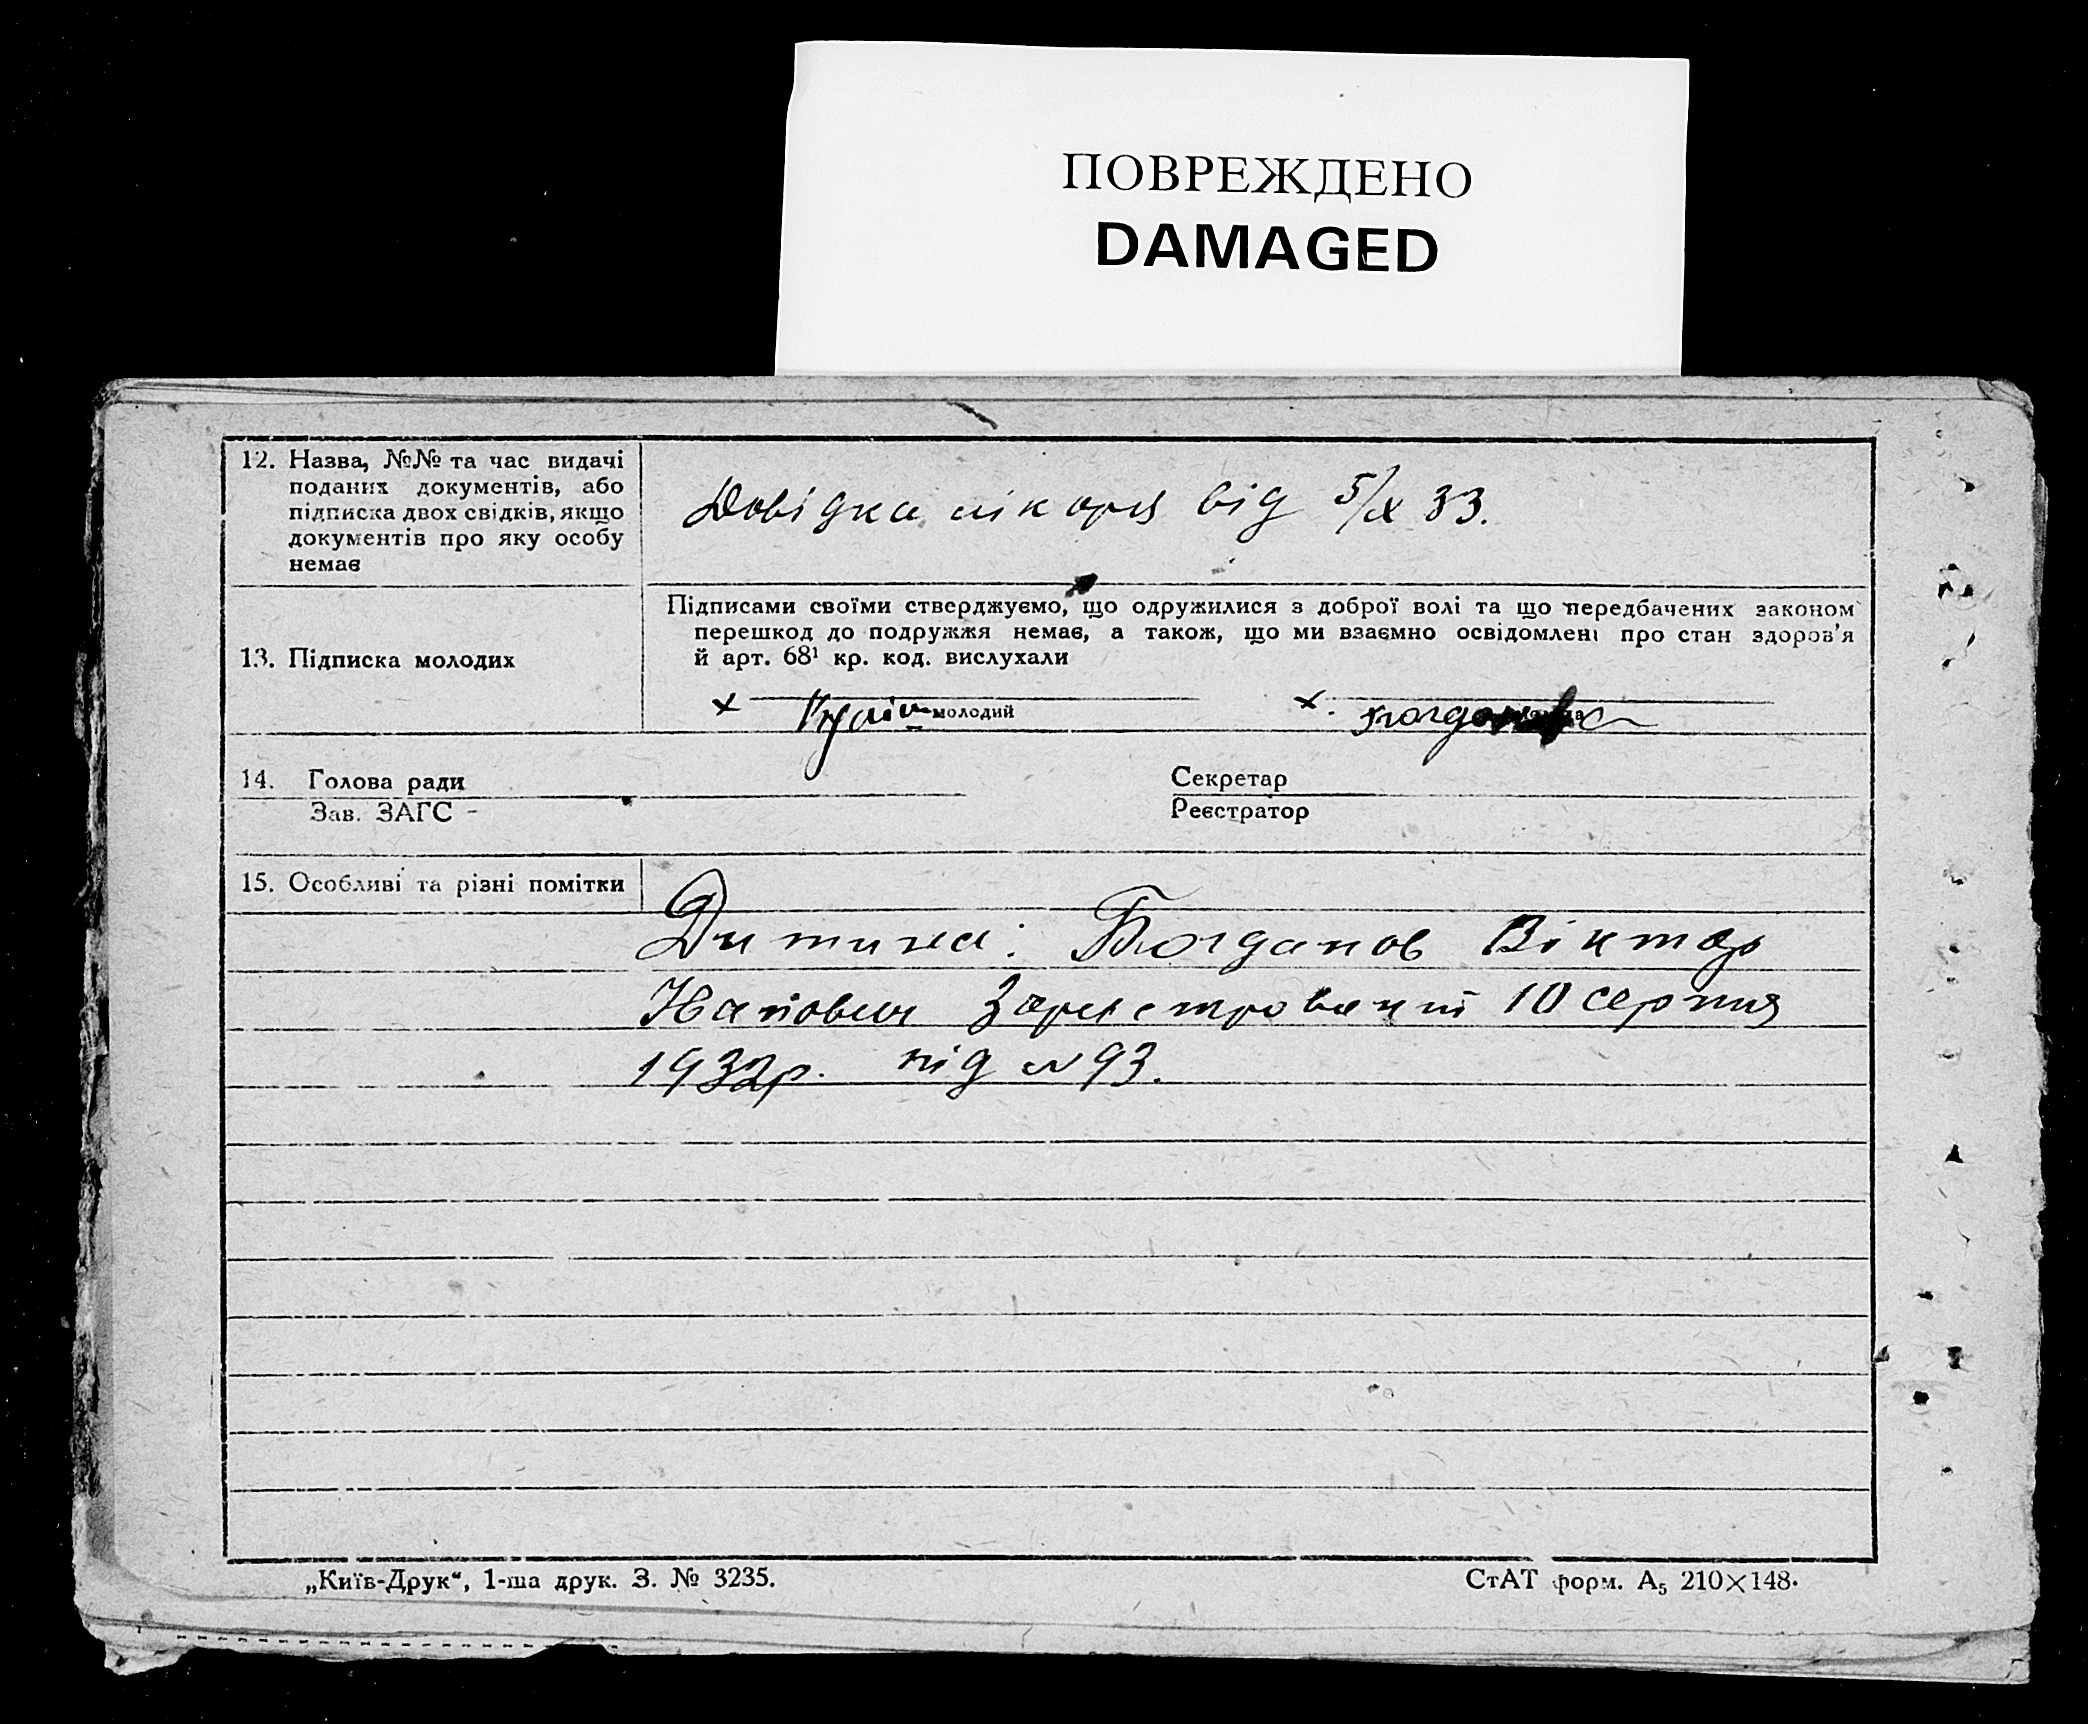 ПОВРЕЖДЕНО
DAMAGED
12. Назва, №№ та час видачі
поданих документів, або
підписка двох свідків, якщо
документів про яку особу
немає
Довідка лікаря від 5/IX 33.
13. Підписка молодих
Підписами своїми стверджуємо, що одружилися з доброї волі та що передбачених законом
перешкод до подружжя немає, а також, що ми взаємно освідомлені про стан здоров'я
й арт. 68¹ кр. код. вислухали
х молодий х.
14. Голова ради Секретар
Зав. ЗАГС - Реєстратор
15. Особливі та різні помітки
Дитина: Богданов Віктор
Зареєстрований 10 серпня
1932р. під N 93.
„Київ-Друк“, 1-ша друк. З. № 3235. СтАТ форм. А₅ 210×148.